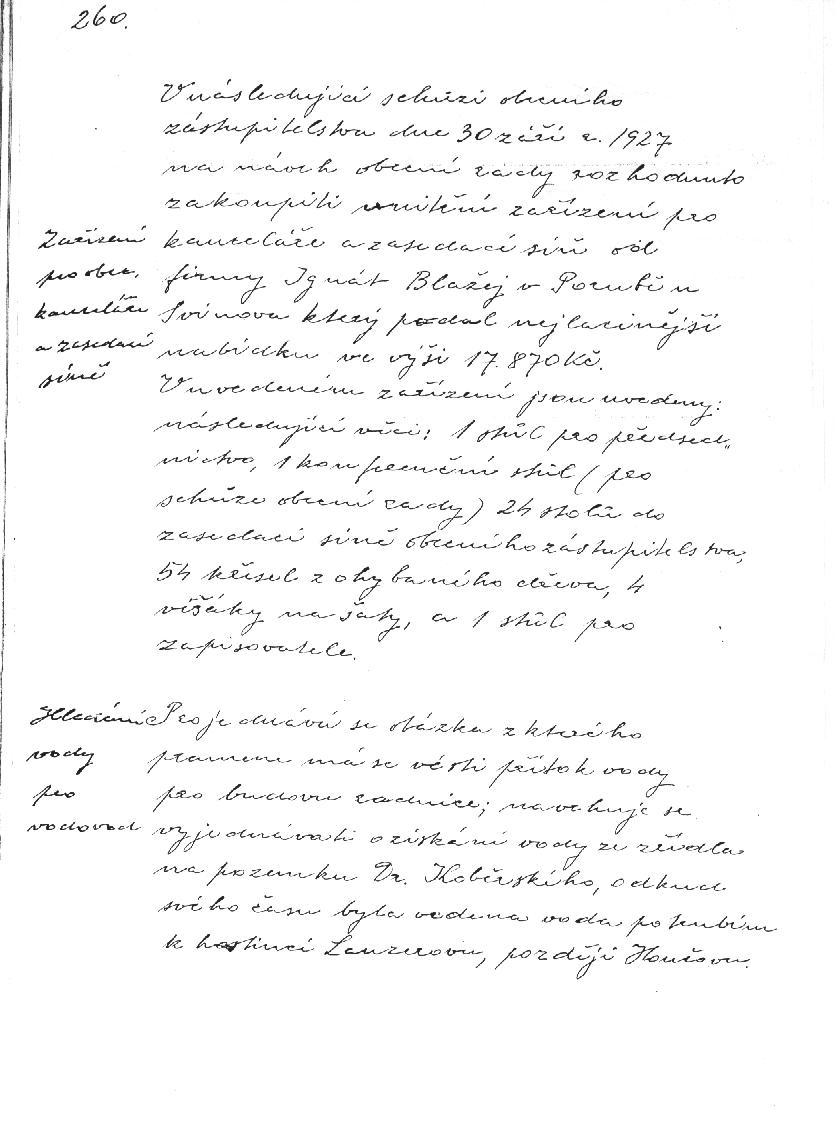 260.
V následující schůzi obecního
zástupitelstva dne 30 září r. 1927
na návrh obecní rady rozhodnuto
zakoupiti vnitřní zařízení pro
kanceláře a zasedací síň od
firmy Ignát Blažej v Porubě u
Svinova který podal nejlacinější
nabídku ve výši 17.870 Kč.
Zařízení
pro obec.
kanceláře
a zasedací
síně
V uvedeném zařízení jsou uvedeny:
následující věci: 1 stůl pro předsed„
nictvo, 1 konferenční stůl (pro
schůze obecní rady) 24 stolů do
zasedací síně obecního zástupitelstva,
54 křísel z ohybaného dřeva, 4
víšáky na šaty, a 1 stůl pro
zapisovatele.
Hledání
vody
pro
vodovod
Projednává se otázka z kterého
pramene má se vésti přítok vody
pro budovu radnice; navrhuje se
vyjednávati o získání vody ze zřídla
na pozemku Dr. Koběrského, odkud
svého času byla vedena voda potrubím
k hostinci Lanzerovu, později Honšovu.